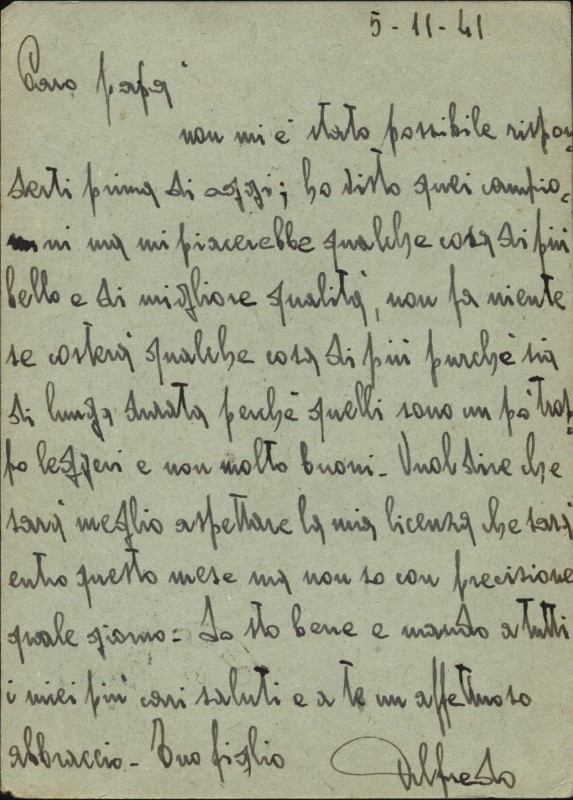 5-11-41
Caro papà
non mi è stato possibile rispon-
derti prima di oggi; ho visto quei campio-
ni ma mi piacerebbe qualche cosa di più
bello e di migliore qualità, non fa niente
se costerà qualche cosa di più purchè sia
di lunga durata perchè quelli sono un pò trop-
po leggeri e non molto buoni - Vuol dire che
sarà meglio aspettare la mia licenza che sarà
entro questo mese ma non so con precisione
quale giorno - Io sto bene e mando a tutti
i miei più cari saluti e a te un affettuoso
abbraccio - Tuo figlio Alfredo